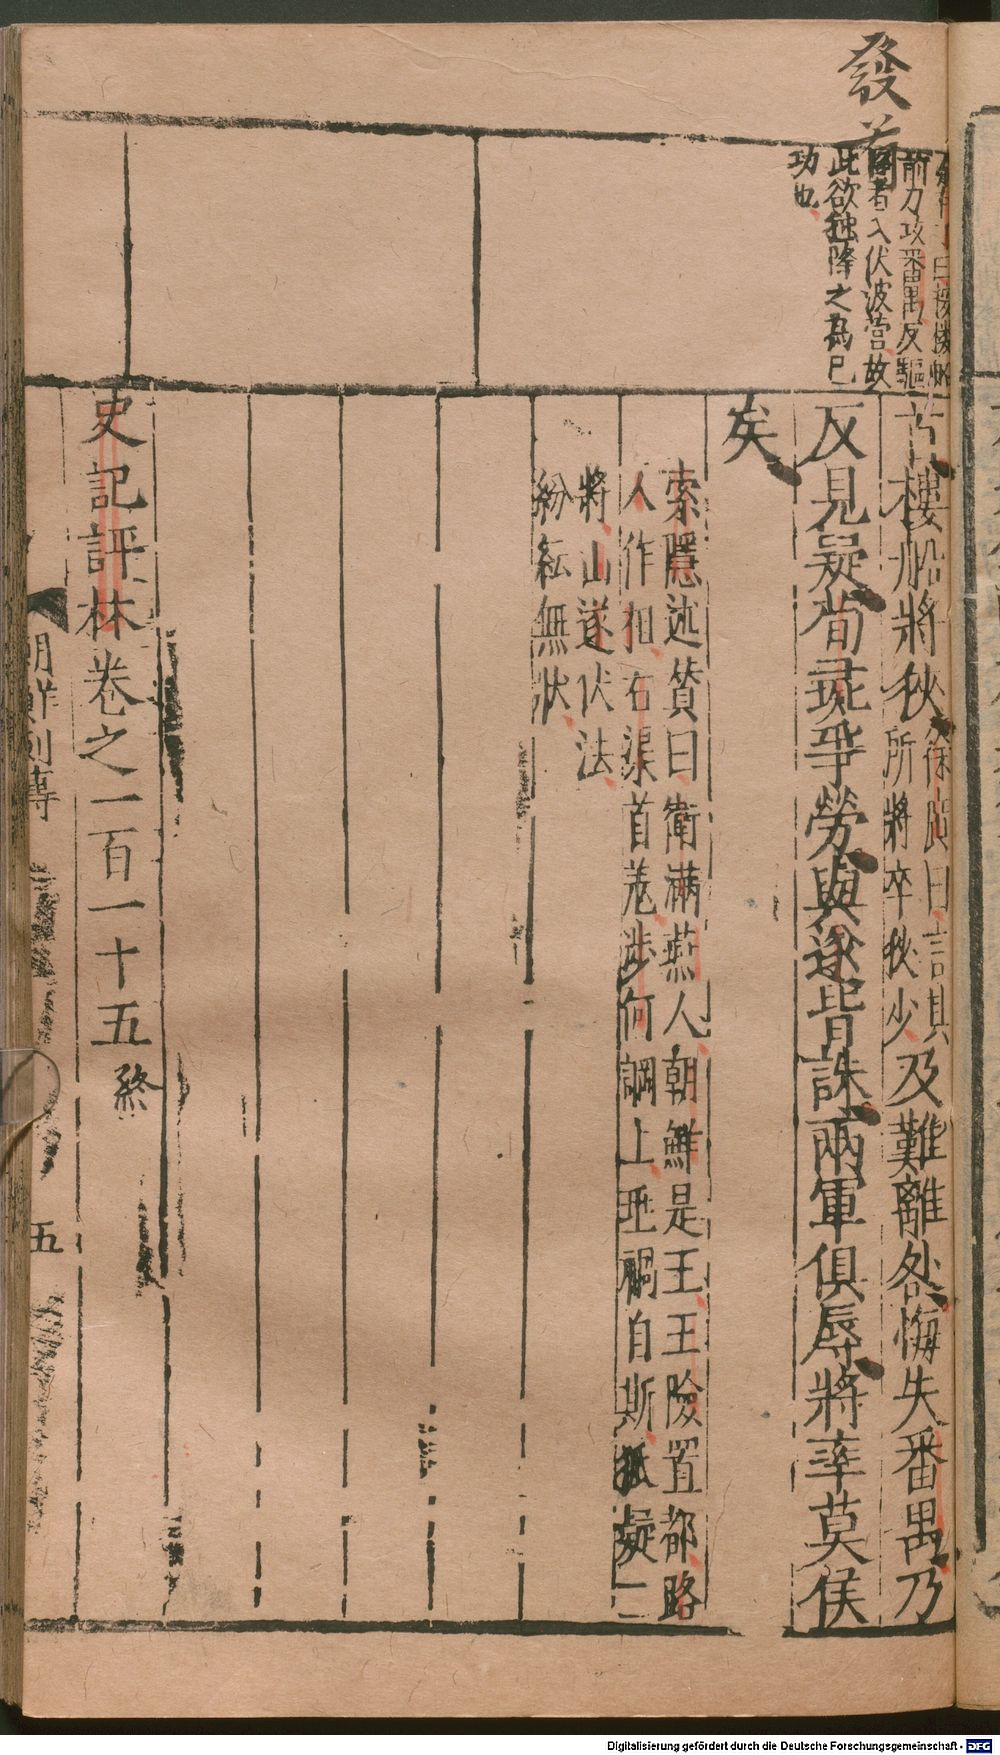 發
前力攻番禺反驅
者入伏波营故
此欲独降之為己
功也
樓船將狹徐廣曰言其所將卒狹少及難離咎悔失番禺乃
反見疑荀彘爭勞與遂皆誅兩軍俱辱將率莫侯
矣
索隱述賛曰衛滿燕人朝鮮是王王險置都路
人作相右渠首羗涉何調上兆禍自斯狐疑二
將山遂伏法
紛紜無狀
史記評林卷之一百一十五終
朝鮮列傳
五
Digitalisierung gefördert durch die Deutsche Forschungsgemeinschaft - DFG